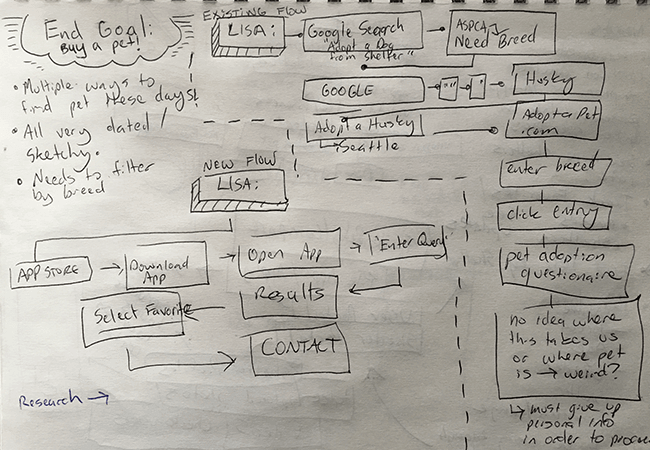 End Goal:
Buy a pet!
• Multiple ways to
find pet these days!
• All very dated/
sketchy.
• Needs to filter
by breed
EXISTING FLOW
LISA:
Google Search
"Adopt a Dog
from shelter"
ASPCA
Need Breed
GOOGLE
Husky
Adopt a Husky
↳ Seattle
AdoptaPet
.com
enter breed
click entry
pet adoption
questionaire
no idea where
this takes us
or where pet
is → weird?
↳ must give up
personal info
in order to
NEW FLOW
LISA:
APP STORE
Download
App
Open App
"Enter Query"
Results
Select Favorite
CONTACT
Research →